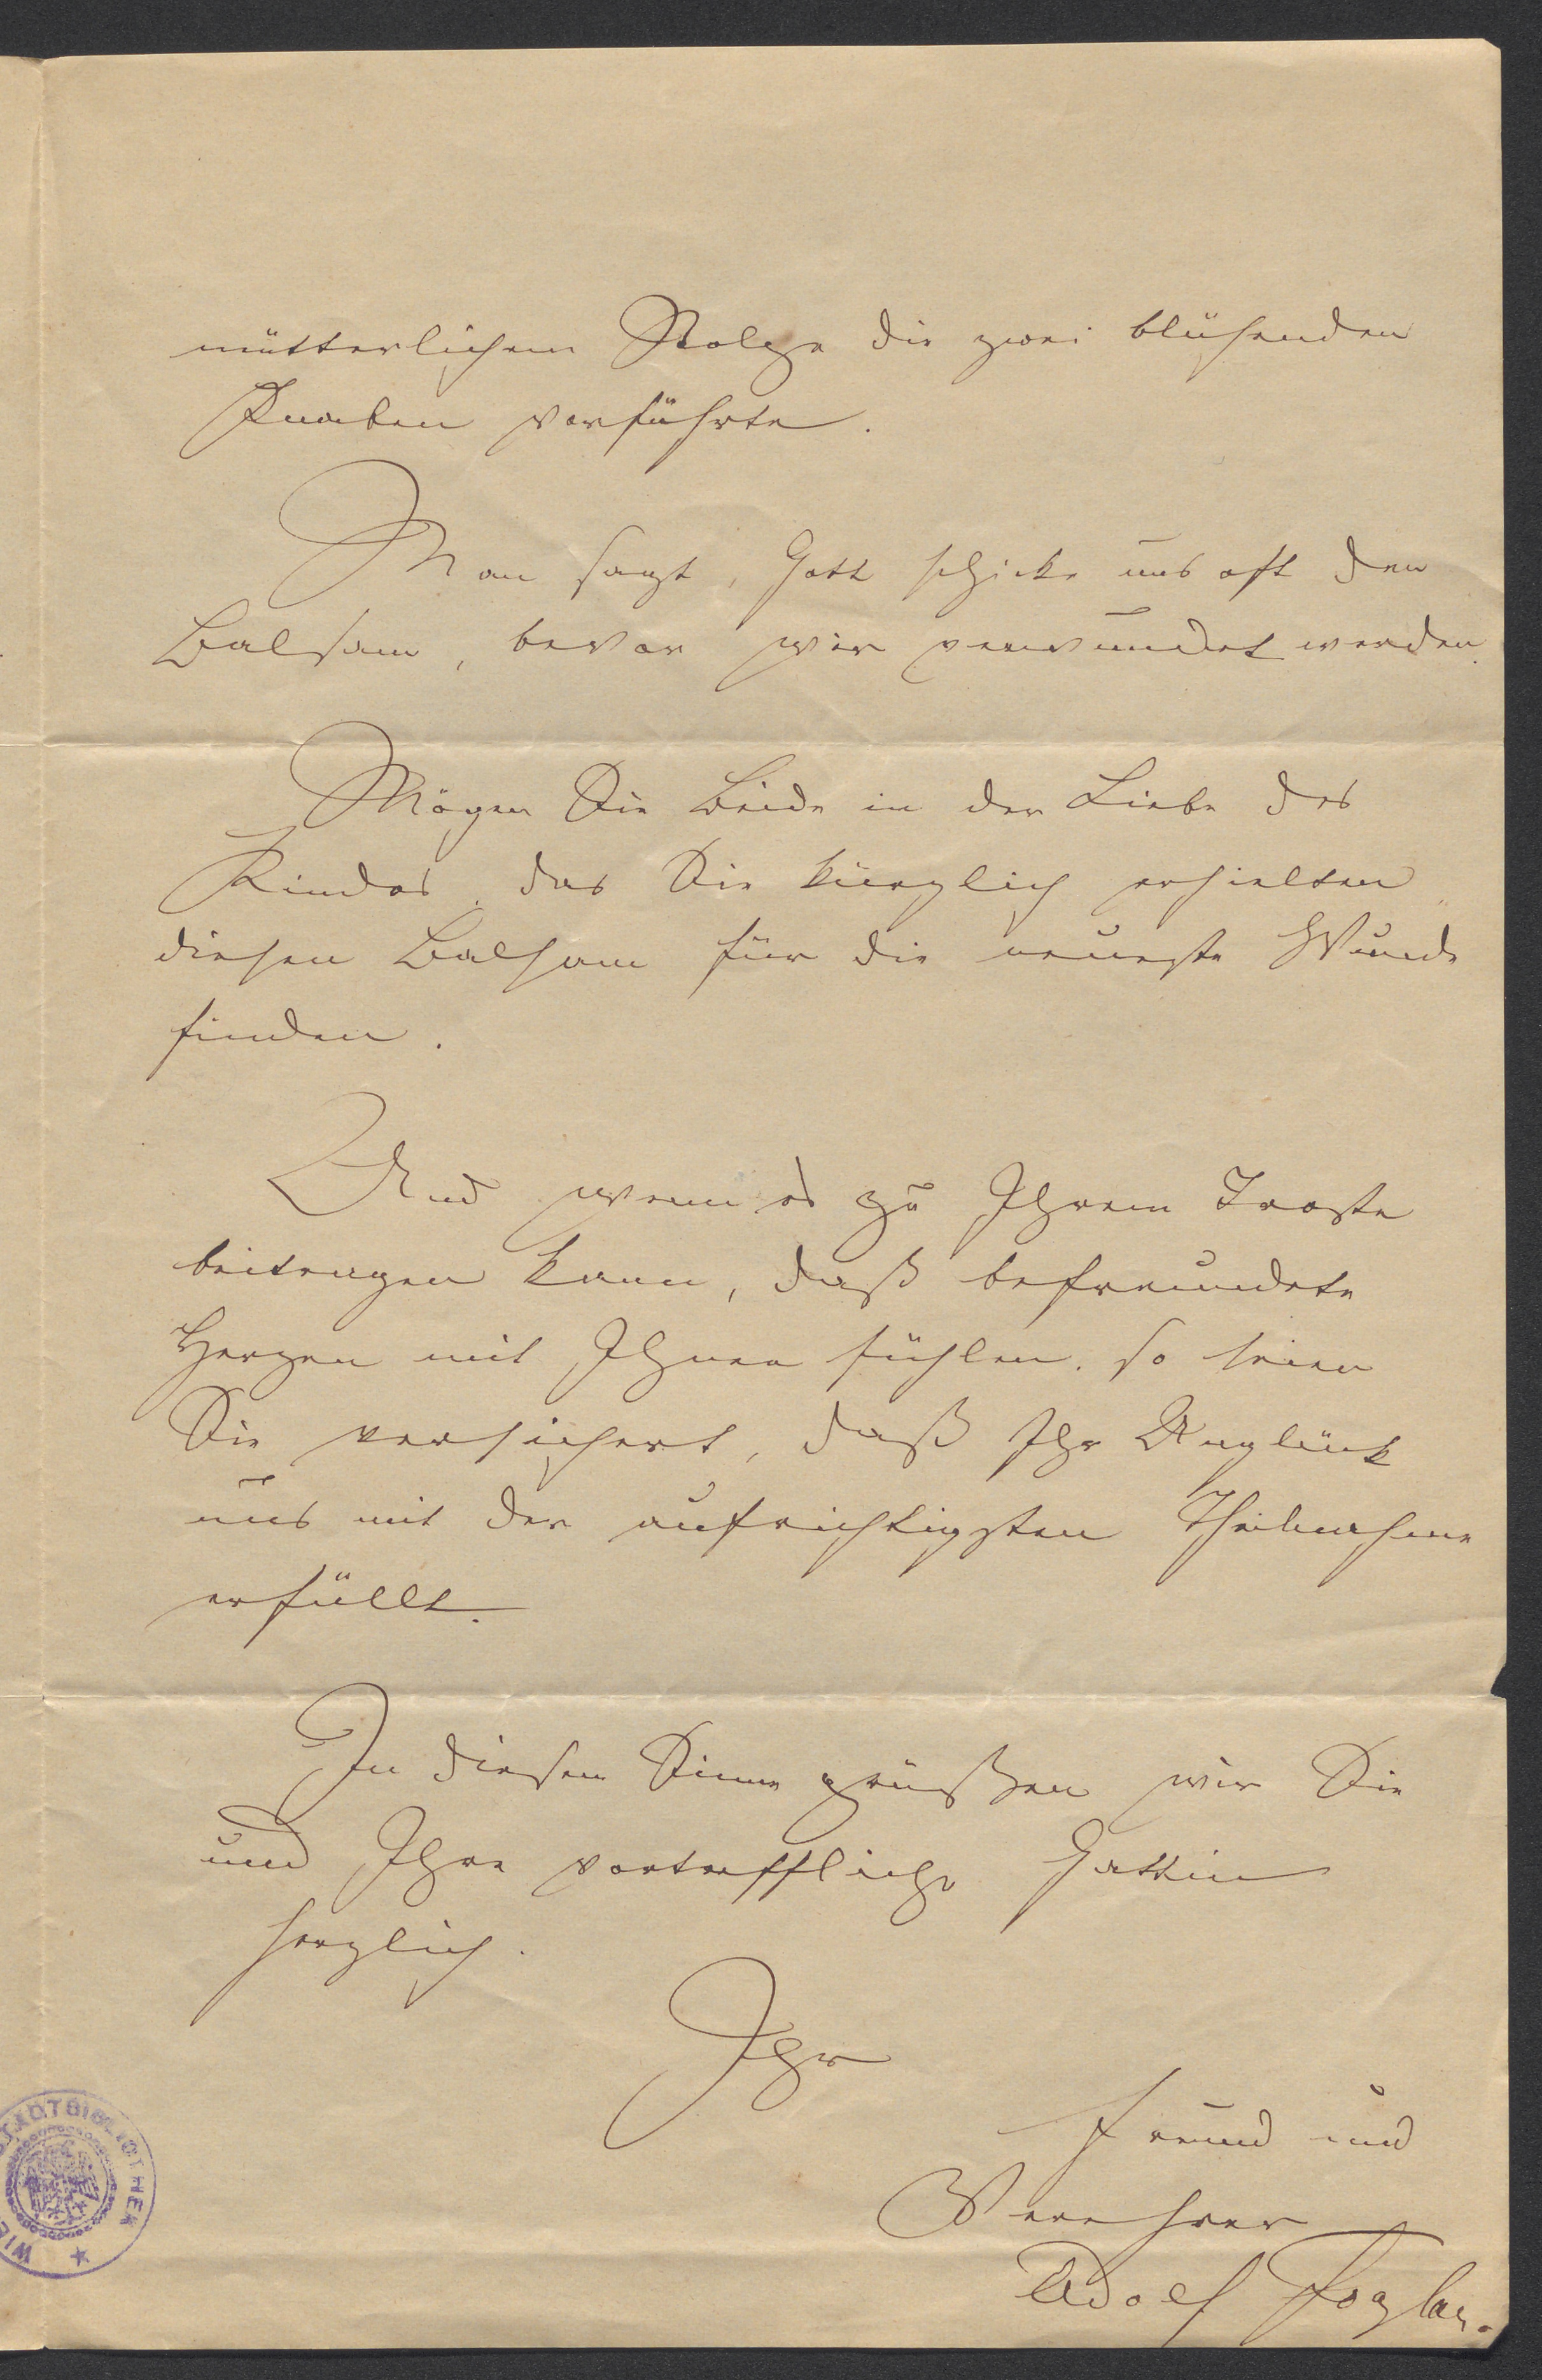 mütterlichem Stolze die zwei blühenden
Knaben vorführte.
Man sagt, Gott schicke uns oft den
Balsam, bevor wir verwundet werden.
Mögen Sie Beide in der Liebe des
Kindes, das Sie kürzlich erhielten
diesen Balsam für die neueste Wunde
finden.
Und wenn es zu Ihrem Troste
beitragen kann, daß befreundete
Herzen mit Ihnen fühlen, so seien
Sie versichert, daß Ihr Unglück
uns mit der aufrichtigsten Theilnahme
erfüllt.
In diesem Sinne grüßen wir Sie
und Ihre vortreffliche Gattin
herzlich.
Ihr
Freund und
Verehrer
Adolf Foglar.
STADTBIBLIOTHEK
WIE